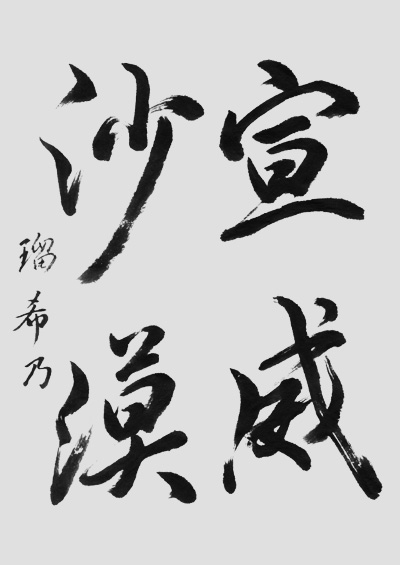 宣威
沙漠
瑠希乃